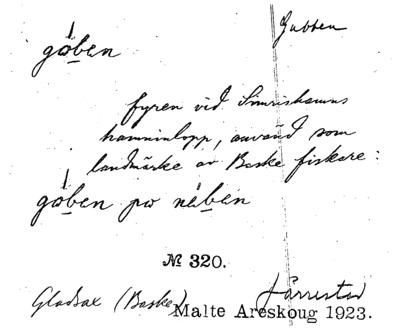 Gubben
góben
fyren vid Simrishamns
hamninlopp, använd som
landmärke av Baske fiskare:
góben po nében
№ 320.
Gladsax (Baske) Järrestad
Malte Areskoug 1923.